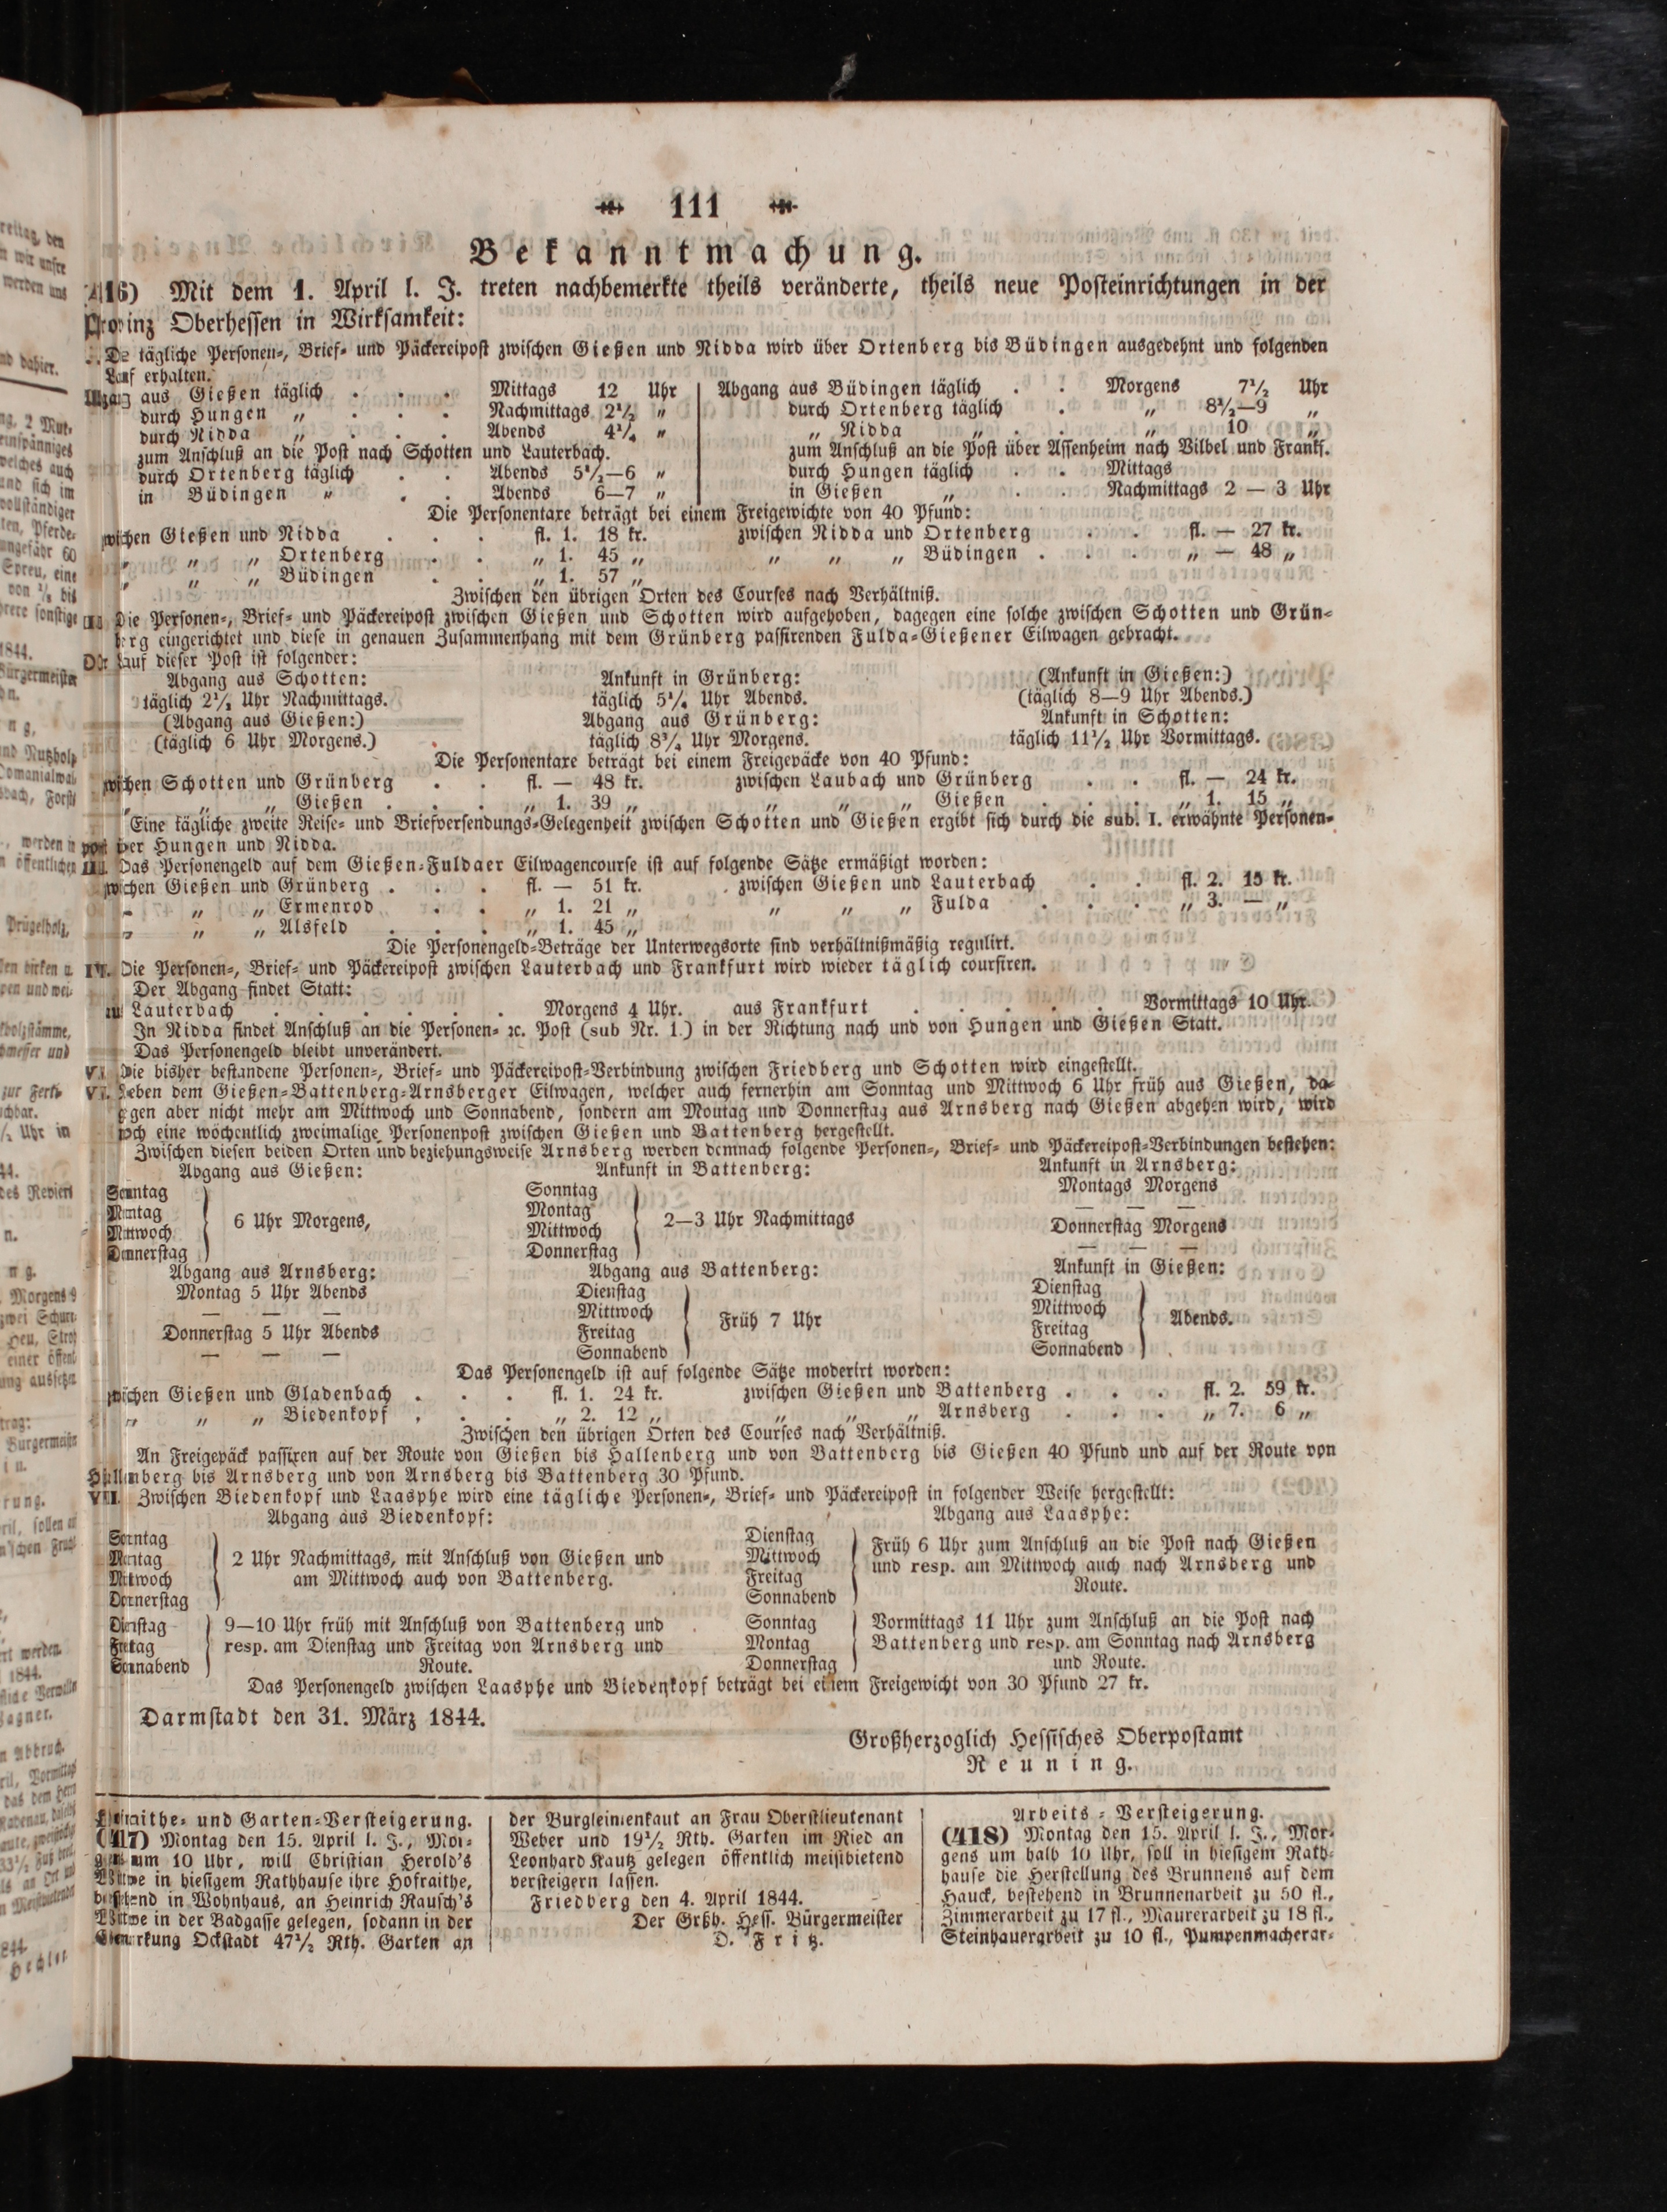 111
Bekanntmachung.
416) Mit dem 1. April l. J. treten nachbemerkte theils veränderte, theils neue Posteinrichtungen in der
Provinz Oberhessen in Wirksamkeit:
tägliche Personen-, Brief- und Päckereipost zwischen Gießen und Nidda wird über Ortenberg bis Büdingen ausgedehnt und folgenden
Lauf erhalten.
aus Gießen täglich . . . Mittags 12 Uhr
durch Hungen „ . . . Nachmittags 2½ „
durch Nidda „ . . . Abends 4¼ „
zum Anschluß an die Post nach Schotten und Lauterbach.
durch Ortenberg täglich . . Abends 5½—6 „
in Büdingen „ . . Abends 6—7 „
Abgang aus Büdingen täglich . . Morgens 7½ Uhr
durch Ortenberg täglich . „ 8½—9 „
„ Nidda „ . . „ 10 „
zum Anschluß an die Post über Assenheim nach Vilbel und Frankf.
durch Hungen täglich . . Mittags
in Gießen „ . . Nachmittags 2 — 3 Uhr
Die Personentaxe beträgt bei einem Freigewichte von 40 Pfund:
zwischen Gießen und Nidda . . . fl. 1. 18 kr. zwischen Nidda und Ortenberg . . fl. — 27 kr.
„ „ „ Ortenberg . . „ 1. 45 „ „ „ „ Büdingen . . . „ — 48 „
„ „ „ Büdingen . . „ 1. 57 „
Zwischen den übrigen Orten des Courses nach Verhältniß.
II. Die Personen-, Brief- und Päckereipost zwischen Gießen und Schotten wird aufgehoben, dagegen eine solche zwischen Schotten und Grün-
berg eingerichtet und diese in genauen Zusammenhang mit dem Grünberg passirenden Fulda-Gießener Eilwagen gebracht.
Der Lauf dieser Post ist folgender:
Abgang aus Schotten: Ankunft in Grünberg: (Ankunft in Gießen:)
täglich 2½ Uhr Nachmittags. täglich 5¼ Uhr Abends. (täglich 8—9 Uhr Abends.)
(Abgang aus Gießen:) Abgang aus Grünberg: Ankunft in Schotten:
(täglich 6 Uhr Morgens.) täglich 8¾ Uhr Morgens. täglich 11½ Uhr Vormittags.
Die Personentaxe beträgt bei einem Freigepäcke von 40 Pfund:
zwischen Schotten und Grünberg . . fl. — 48 kr. zwischen Laubach und Grünberg . . fl. — 24 kr.
„ „ „ Gießen . . . „ 1. 39 „ „ „ „ Gießen . . . „ 1. 15 „
Eine tägliche zweite Reise- und Briefversendungs-Gelegenheit zwischen Schotten und Gießen ergibt sich durch die sub. I. erwähnte Personen-
post per Hungen und Nidda.
III. Das Personengeld auf dem Gießen-Fuldaer Eilwagencourse ist auf folgende Sätze ermäßigt worden:
zwischen Gießen und Grünberg . . . fl. — 51 kr. zwischen Gießen und Lauterbach . . fl. 2. 15 kr.
„ „ „ Ermenrod . . „ 1. 21 „ „ „ „ Fulda . . . „ 3. — „
„ „ „ Alsfeld . . . „ 1. 45 „
Die Personengeld-Beträge der Unterwegsorte sind verhältnißmäßig regulirt.
IV. Die Personen-, Brief- und Päckereipost zwischen Lauterbach und Frankfurt wird wieder täglich coursiren.
Der Abgang findet Statt:
Lauterbach . . . . . . Morgens 4 Uhr. aus Frankfurt . . . . . Vormittags 10 Uhr.
In Nidda findet Anschluß an die Personen- ꝛc. Post (sub Nr. 1.) in der Richtung nach und von Hungen und Gießen Statt.
Das Personengeld bleibt unverändert.
V. Die bisher bestandene Personen-, Brief- und Päckereipost-Verbindung zwischen Friedberg und Schotten wird eingestellt.
VI. Neben dem Gießen-Battenberg-Arnsberger Eilwagen, welcher auch fernerhin am Sonntag und Mittwoch 6 Uhr früh aus Gießen, da-
gegen aber nicht mehr am Mittwoch und Sonnabend, sondern am Montag und Donnerstag aus Arnsberg nach Gießen abgehen wird, wird
noch eine wöchentlich zweimalige Personenpost zwischen Gießen und Battenberg hergestellt.
Zwischen diesen beiden Orten und beziehungsweise Arnsberg werden demnach folgende Personen-, Brief- und Päckereipost-Verbindungen bestehen:
Abgang aus Gießen: Ankunft in Battenberg: Ankunft in Arnsberg:
Sonntag Sonntag Montags Morgens
Montag Montag — — —
6 Uhr Morgens, 2—3 Uhr Nachmittags
Mittwoch Mittwoch Donnerstag Morgens
Donnerstag Donnerstag — — —
Abgang aus Arnsberg: Abgang aus Battenberg: Ankunft in Gießen:
Montag 5 Uhr Abends Dienstag Dienstag
— — — Mittwoch Mittwoch
Früh 7 Uhr Abends.
Donnerstag 5 Uhr Abends Freitag Freitag
— — — Sonnabend Sonnabend
Das Personengeld ist auf folgende Sätze moderirt worden:
zwischen Gießen und Gladenbach . . . fl. 1. 24 kr. zwischen Gießen und Battenberg . . . fl. 2. 59 kr.
„ „ „ Biedenkopf . . . „ 2. 12 „ „ „ „ Arnsberg . . . „ 7. 6 „
Zwischen den übrigen Orten des Courses nach Verhältniß.
An Freigepäck passiren auf der Route von Gießen bis Hallenberg und von Battenberg bis Gießen 40 Pfund und auf der Route von
Hallenberg bis Arnsberg und von Arnsberg bis Battenberg 30 Pfund.
VII. Zwischen Biedenkopf und Laasphe wird eine tägliche Personen-, Brief- und Päckereipost in folgender Weise hergestellt:
Abgang aus Biedenkopf: Abgang aus Laasphe:
Sonntag
Montag
Mittwoch
Donnerstag
2 Uhr Nachmittags, mit Anschluß von Gießen und
am Mittwoch auch von Battenberg.
Dienstag
Mittwoch
Freitag
Sonnabend
Früh 6 Uhr zum Anschluß an die Post nach Gießen
und resp. am Mittwoch auch nach Arnsberg und
Route.
Dienstag
Freitag
Sonnabend
9—10 Uhr früh mit Anschluß von Battenberg und
resp. am Dienstag und Freitag von Arnsberg und
Route.
Sonntag
Montag
Donnerstag
Vormittags 11 Uhr zum Anschluß an die Post nach
Battenberg und resp. am Sonntag nach Arnsberg
und Route.
Das Personengeld zwischen Laasphe und Biedenkopf beträgt bei einem Freigewicht von 30 Pfund 27 kr.
Darmstadt den 31. März 1844.
Großherzoglich Hessisches Oberpostamt
Reuning.
Hofraithe- und Garten-Versteigerung.
(417) Montag den 15. April l. J., Mor-
gens um 10 Uhr, will Christian Herold's
Wittwe in hiesigem Rathhause ihre Hofraithe,
bestehend in Wohnhaus, an Heinrich Rausch's
Wittwe in der Badgasse gelegen, sodann in der
Gemarkung Ockstadt 47½ Rth. Garten an
der Burgleimenkaut an Frau Oberstlieutenant
Weber und 19½ Rth. Garten im Ried an
Leonhard Kautz gelegen öffentlich meistbietend
versteigern lassen.
Friedberg den 4. April 1844.
Der Grßh. Hess. Bürgermeister
D. Fritz.
Arbeits-Versteigerung.
(418) Montag den 15. April l. J., Mor-
gens um halb 10 Uhr, soll in hiesigem Rath-
hause die Herstellung des Brunnens auf dem
Hauck, bestehend in Brunnenarbeit zu 50 fl.,
Zimmerarbeit zu 17 fl., Maurerarbeit zu 18 fl.,
Steinhauerarbeit zu 10 fl., Pumpenmacherar-